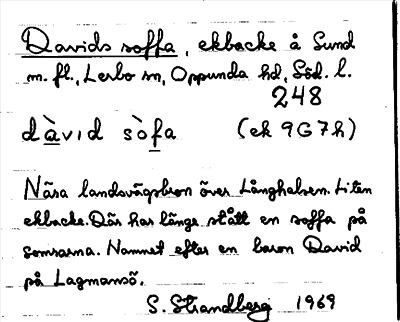 Davids soffa, ekbacke å Sund
m. fl., Lerbo sn, Oppunda hd, Söd. l.
248
dàvid sòfa (ek 9G7h)
Nära landsvägsbron över Långhalsen. Liten
ekbacke. Där har länge stått en soffa på
somrarna. Namnet efter en baron David
på Lagmansö.
S. Strandberg 1969